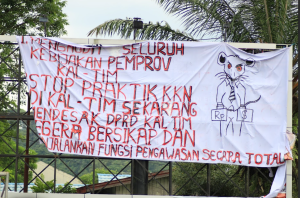 SELURUH
KEBIJAKAN PEMPROV
KAL-TIM
STOP PRAKTIK KKN
DI KAL-TIM SEKARANG
MENDESAK DPRD KALTIM
SEGERA BERSIKAP DAN
JALANKAN FUNGSI PENGAWASAN SECARA TOTAL
RP